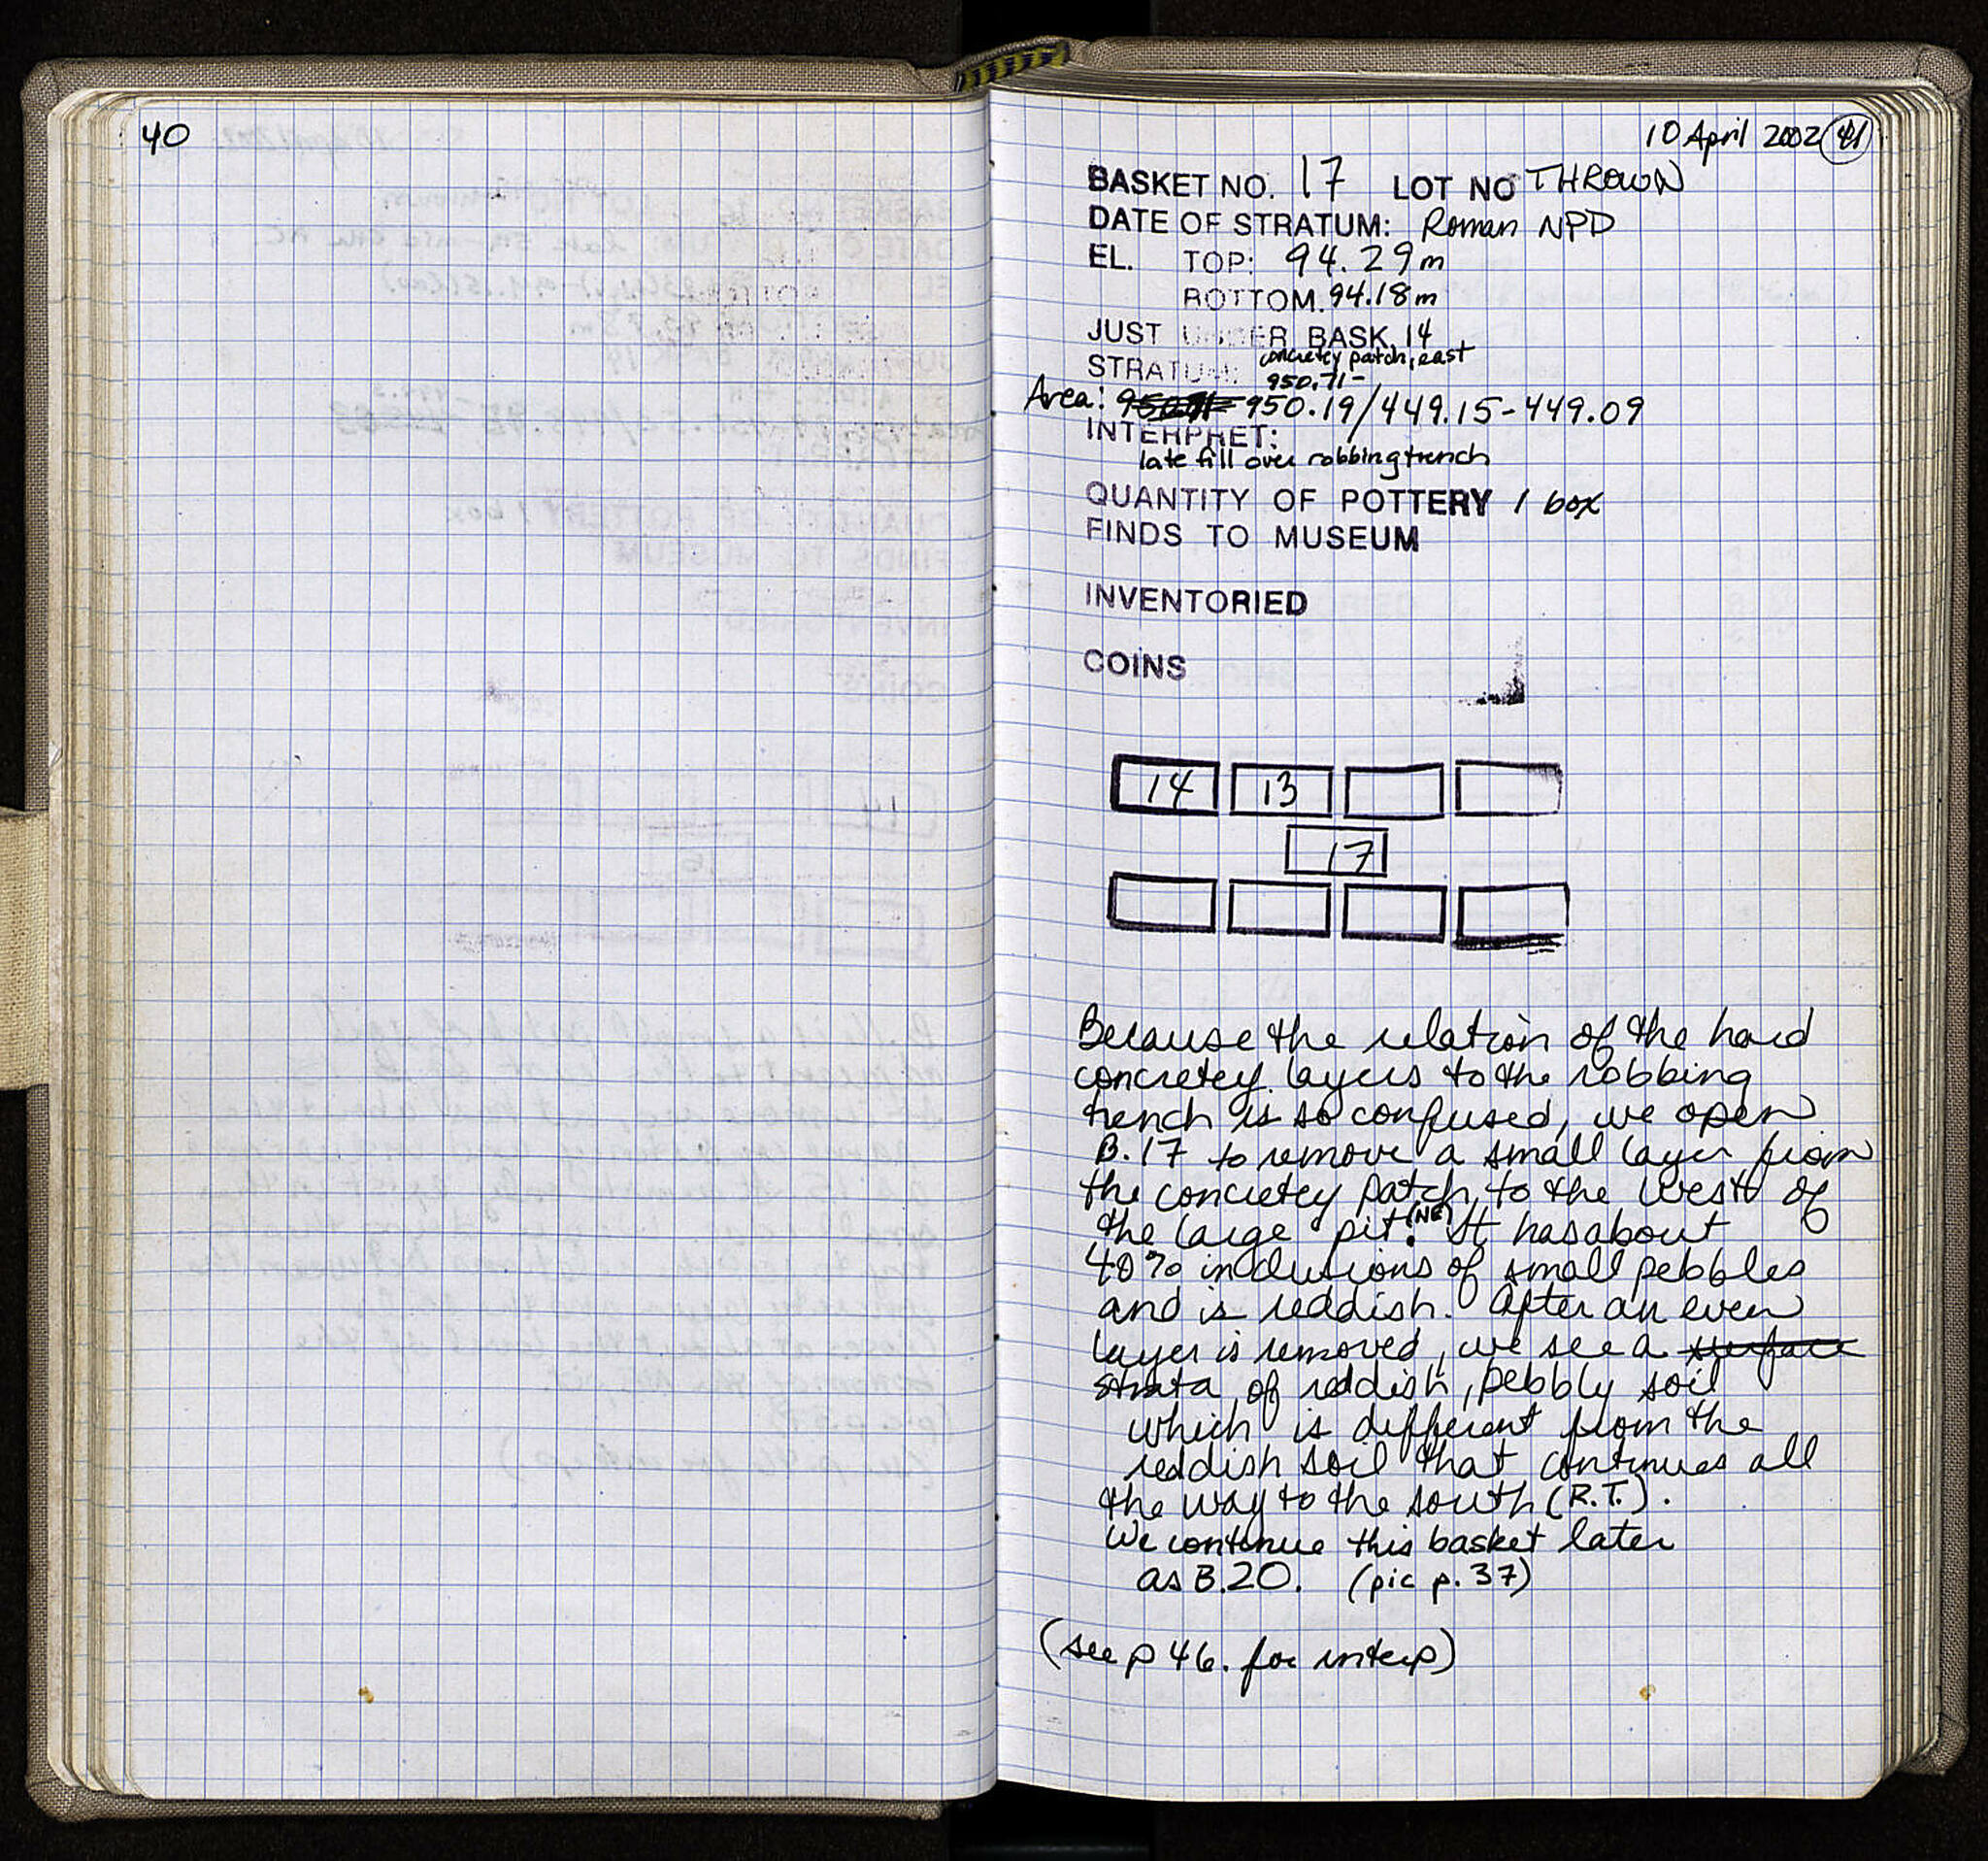 40
10 April 2002 41
BASKET NO. 17 LOT NO THROWN
DATE OF STRATUM: Roman NPD
EL. TOP: 94.29m
BOTTOM. 94.18m
JUST UNDER BASK. 14
STRATUM: concretey patch, east
950.71-
Area: 950.19/449.15-449.09
INTERPRET:
late fill over robbing trench
QUANTITY OF POTTERY 1 box
FINDS TO MUSEUM
INVENTORIED
COINS
14 13
17
Because the relation of the hard
concretey layers to the robbing
trench is so confused, we open
B.17 to remove a small layer from
the concretey patch, to the west of
the large pit (NE). It has about
40% inclusions of small pebbles
and is reddish. After an even
layer is removed, we see a surface
strata of reddish, pebbly soil
which is different from the
reddish soil that continues all
the way to the south (R.T.).
We continue this basket later
as B.20. (pic p. 37)
(see p 46. for interp)